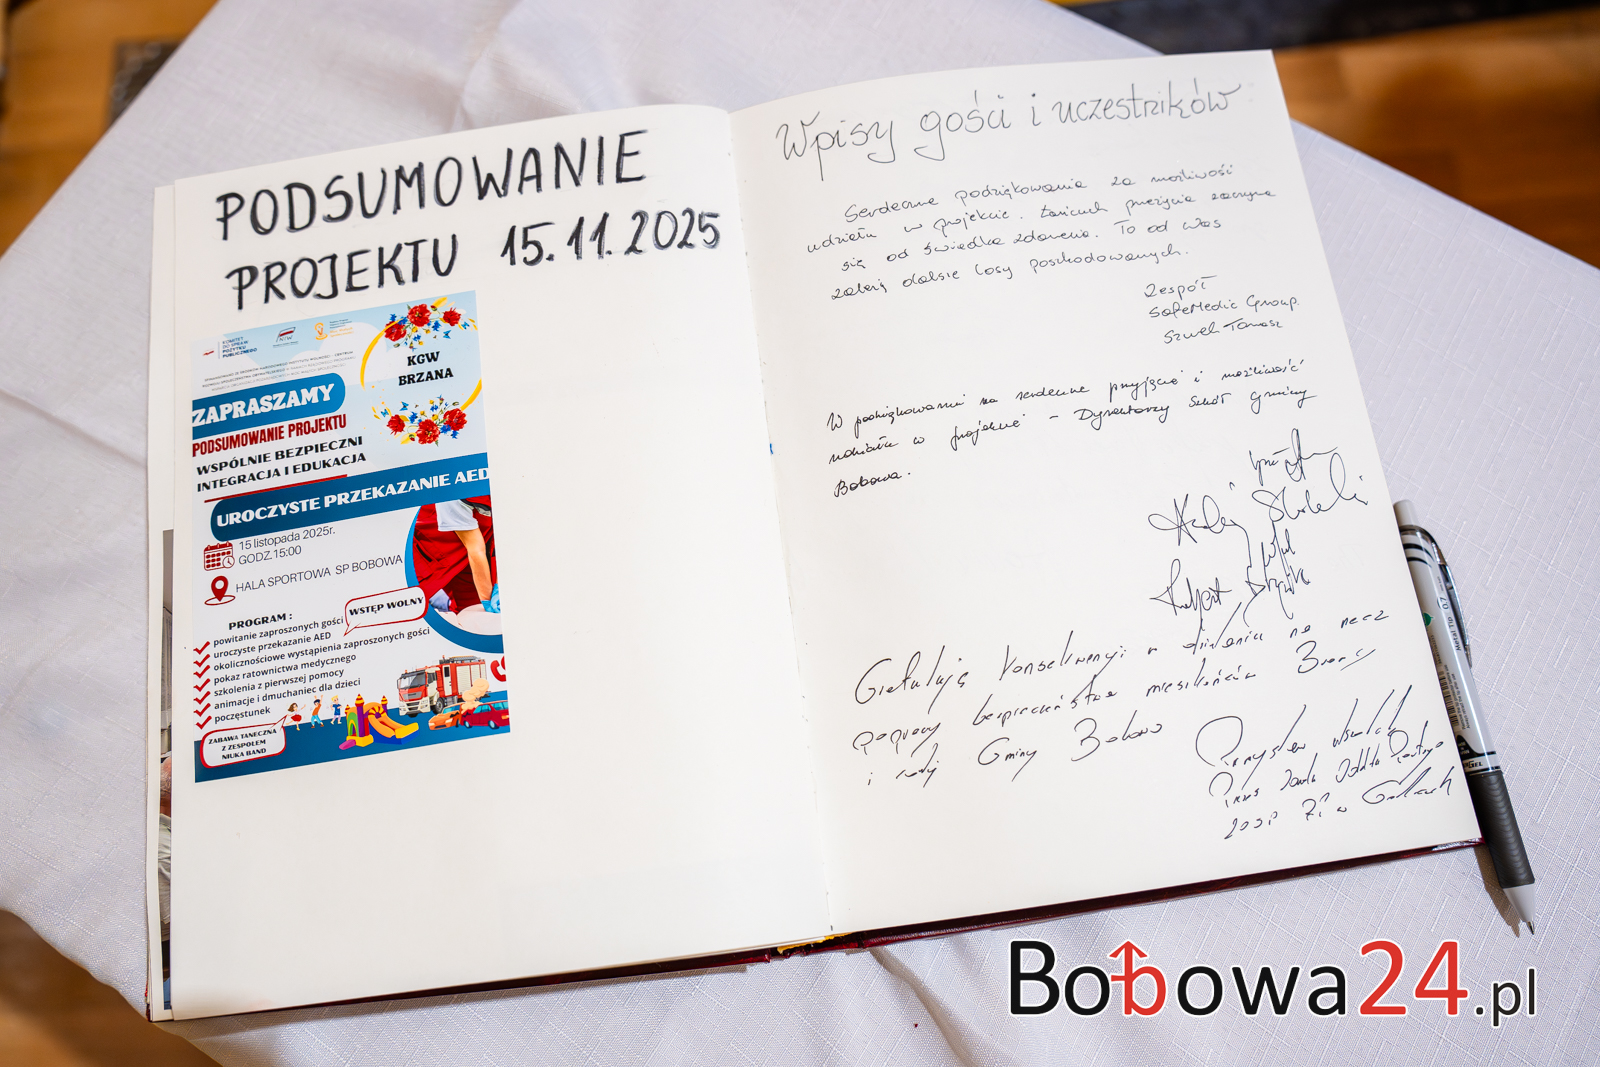 PODSUMOWANIE
PROJEKTU 15.11.2025
KOMITET
DO SPRAW
POŻYTKU
PUBLICZNEGO
NIW
KGW
BRZANA
ZAPRASZAMY
PODSUMOWANIE PROJEKTU
WSPÓLNIE BEZPIECZNI
INTEGRACJA I EDUKACJA
UROCZYSTE PRZEKAZANIE AED
15 listopada 2025r.
GODZ.15:00
HALA SPORTOWA SP BOBOWA
WSTĘP WOLNY
PROGRAM :
powitanie zaproszonych gości
uroczyste przekazanie AED
okolicznościowe wystąpienia zaproszonych gości
pokaz ratownictwa medycznego
szkolenia z pierwszej pomocy
animacje i dmuchaniec dla dzieci
poczęstunek
ZABAWA TANECZNA
Z ZESPOŁEM
NIUKA BAND
Wpisy gości i uczestników
Serdeczne podziękowania za możliwość
udziału w projekcie. Łańcuch przeżycia zaczyna
się od świadka zdarzenia. To od Was
zależą dalsze losy poszkodowanych.
Zespół
SafeMedic Group.
Tomasz
W podziękowaniu za serdeczne przyjęcie i możliwość
udziału w projekcie - Dyrektorzy Szkół gminy
Bobowa.
Gratuluję konsekwencji w działaniu na rzecz
poprawy bezpieczeństwa mieszkańców Brzany
i całej Gminy Bobowa
Przemysław
Prezes
0.7
Bobowa24.pl